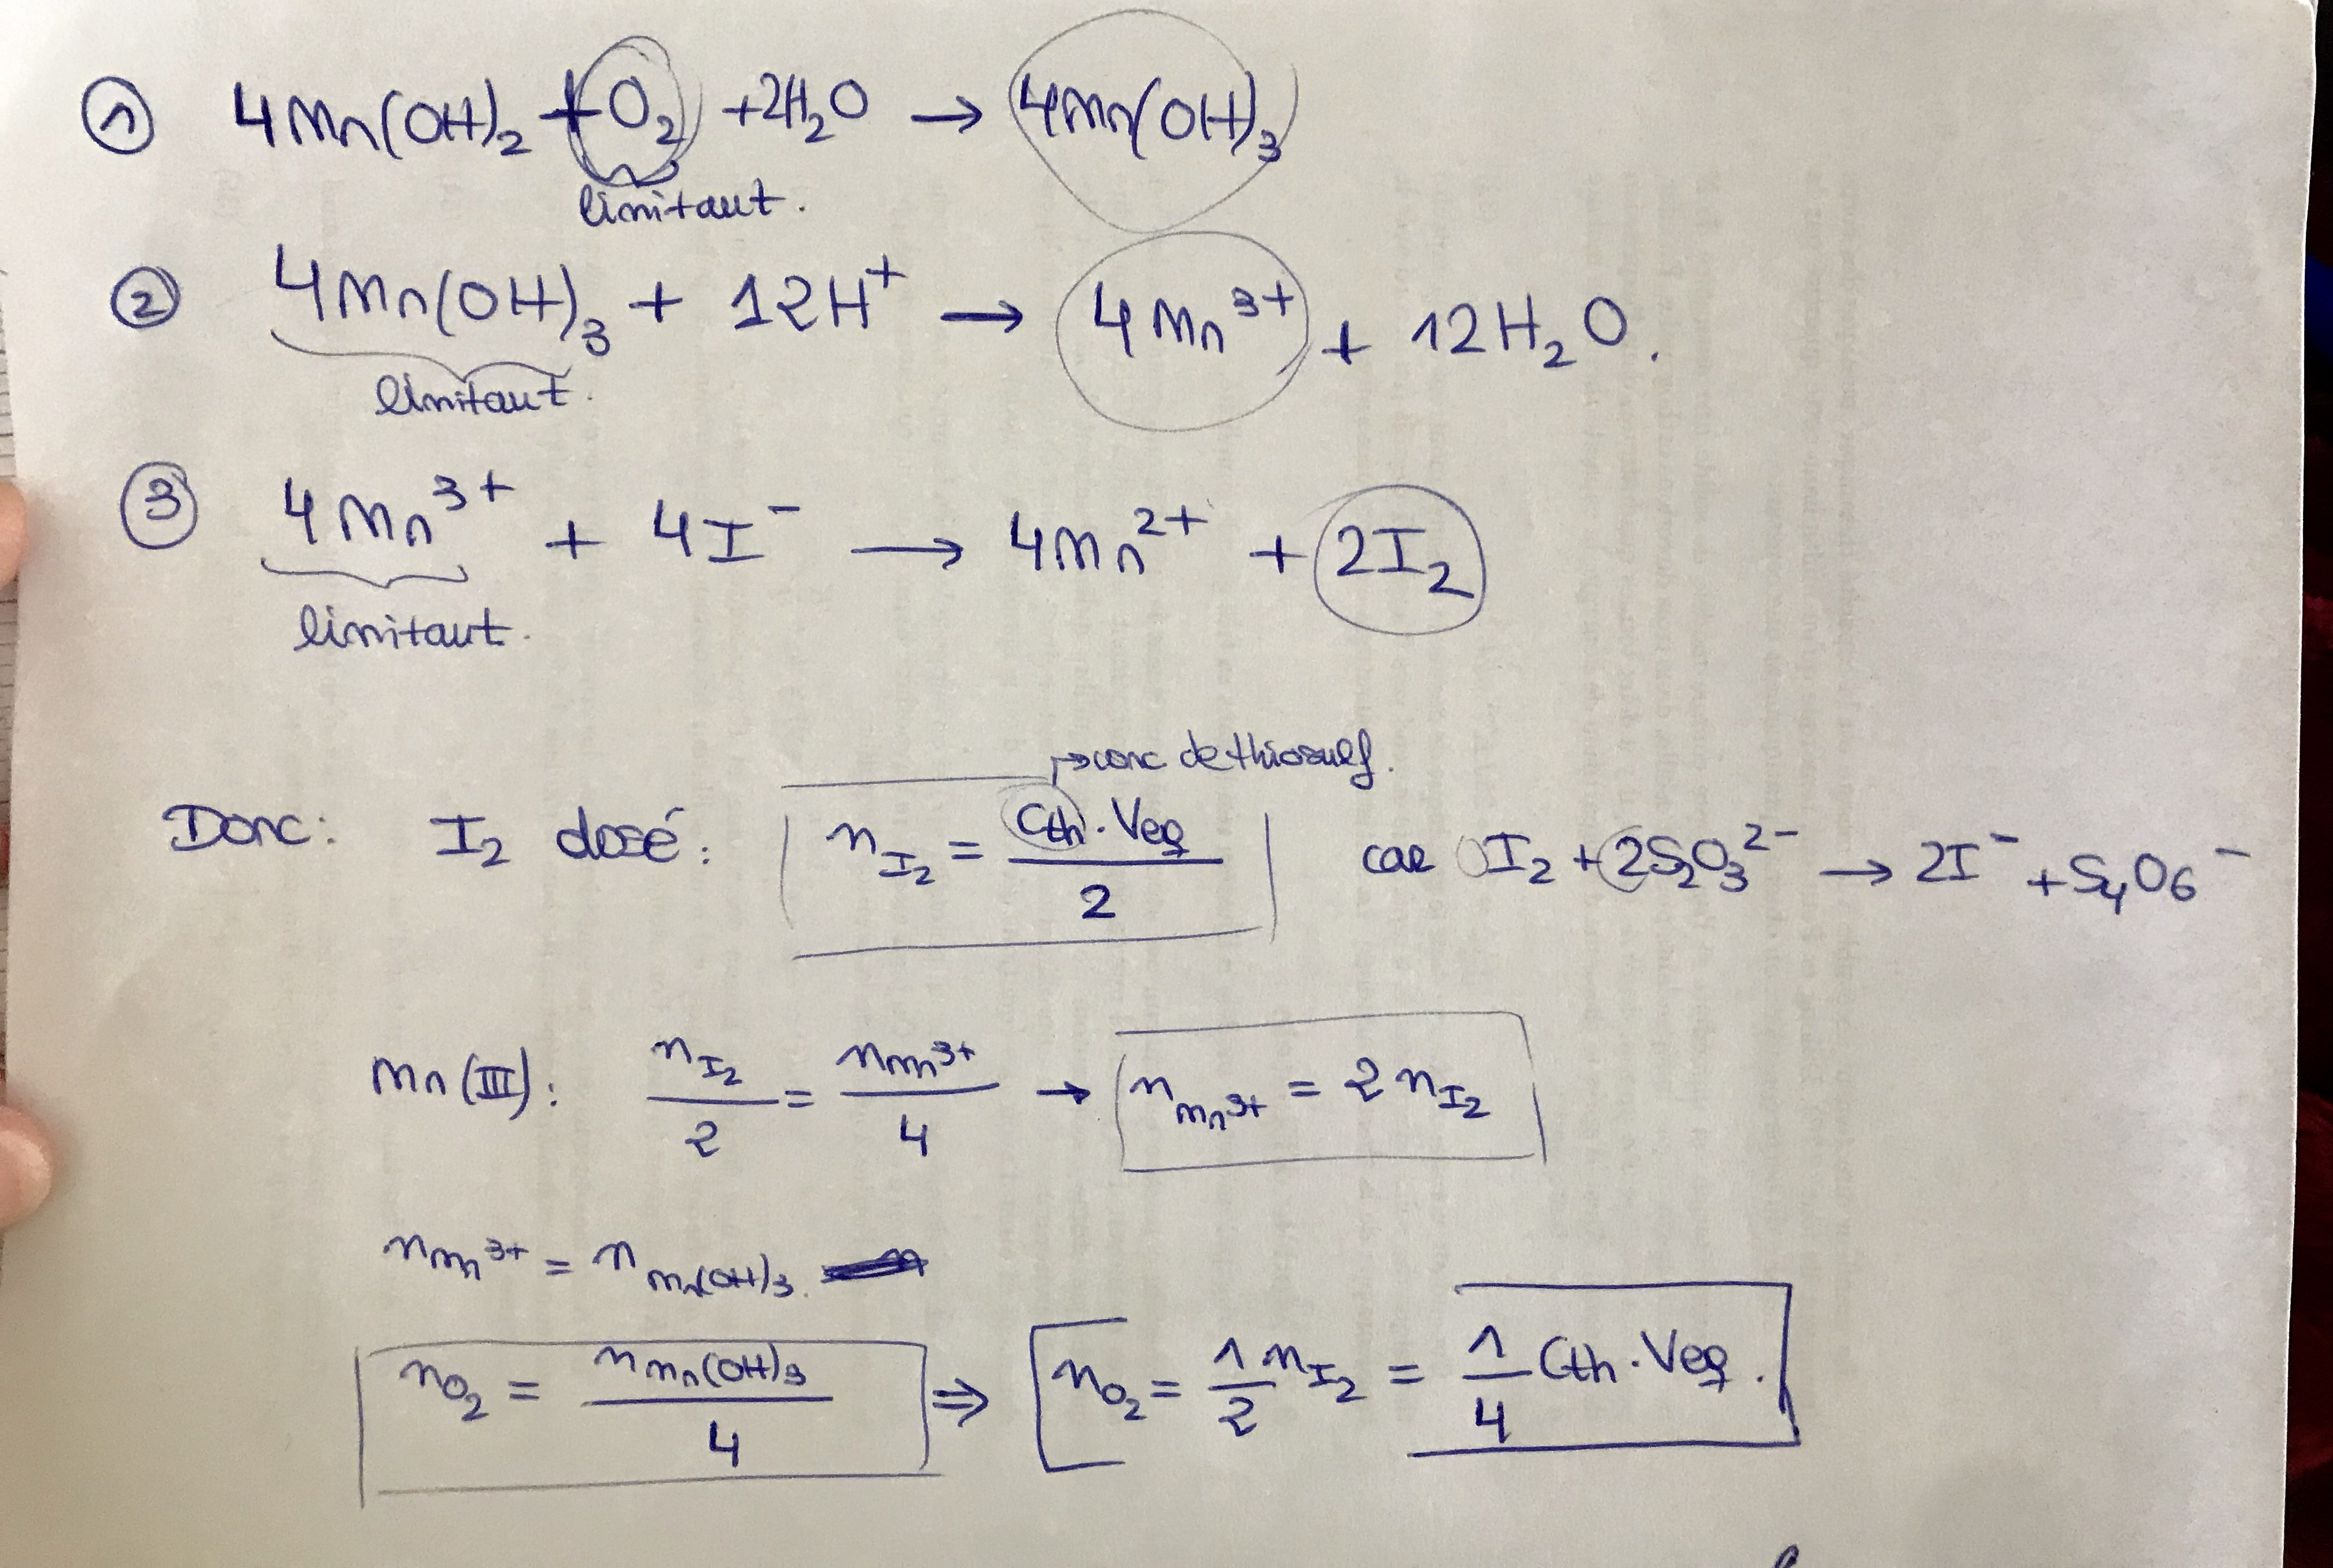 ① 4Mn(OH)₂ + O₂ + 2H₂O → 4Mn(OH)₃
limitant.
② 4Mn(OH)₃ + 12H⁺ → 4Mn³⁺ + 12H₂O.
limitant.
③ 4Mn³⁺ + 4I⁻ → 4Mn²⁺ + 2I₂
limitant.
→ conc de thiosulf.
Donc: I₂ dosé: n_I₂ = Cth·Veq / 2 car I₂ + 2S₂O₃²⁻ → 2I⁻ + S₄O₆⁻
Mn(III): n_I₂ / 2 = n_Mn³⁺ / 4 → n_Mn³⁺ = 2 n_I₂
n_Mn³⁺ = n_Mn(OH)₃.
n_O₂ = n_Mn(OH)₃ / 4 ⇒ n_O₂ = 1/2 n_I₂ = 1/4 Cth·Veq.